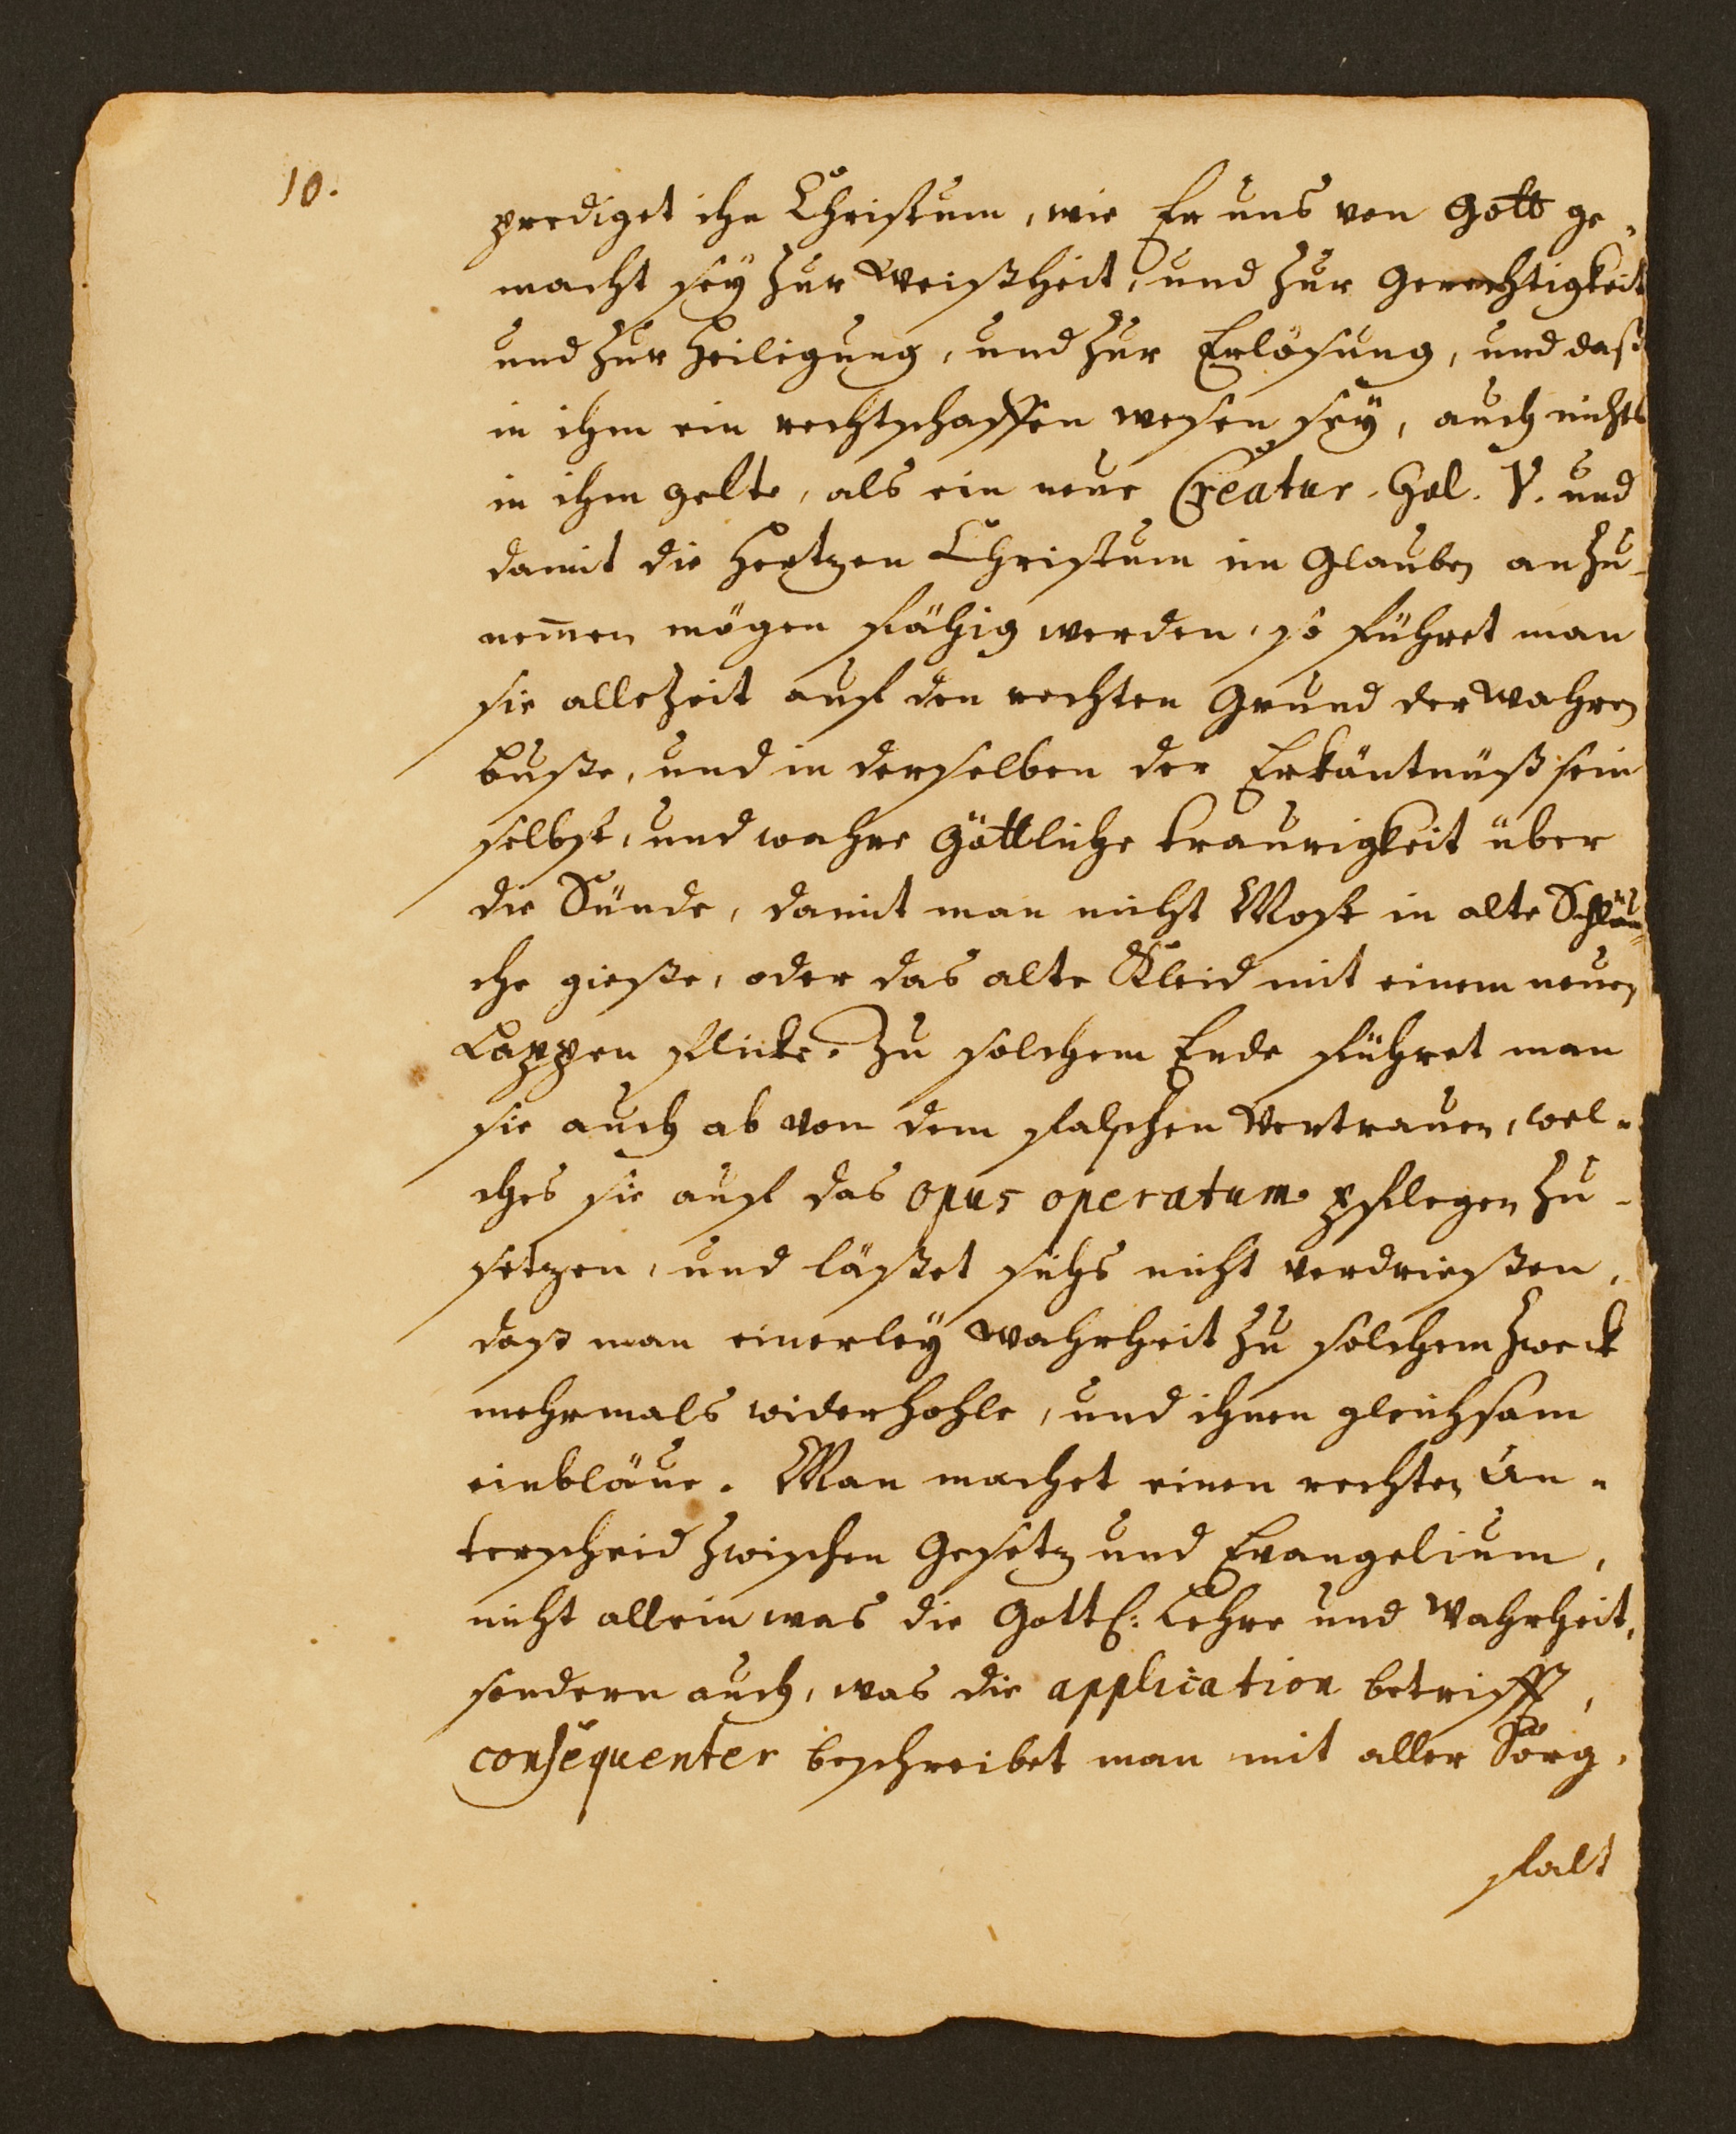 10.
prediget ihn Christum, wie Er uns von Gott ge-
macht sey zur Weißheit, und zur Gerechtigkeit
und zur Heiligung, und zur Erlösung, und daß
in ihm ein rechtschaffen wesen sey, auch nichts
in ihm gelte, als ein neue Creatur. Gal. V. und
damit die Hertzen Christum im Glauben anzu-
nem̄en mögen fähig werden, so führet man
sie allezeit auf den rechten Grund der wahren
buße, und in derselben der Erkäntnüß sein
selbst, und wahre Göttliche traurigkeit über
die Sünde, damit man nicht Most in alte Schläu-
che gieße, oder das alte Kleid mit einem neuen
Lappen flicke. Zu solchem Ende führet man
sie auch ab von dem falschen Vertrauen, wel-
ches sie auf das opus operatum pflegen zu-
setzen, und läßet sichs nicht verdrießen,
daß man einerley Wahrheit zu solchem zweck
mehrmals widerhohle, und ihnen gleichsam
einbläue. Man machet einen rechten Un-
terscheid zwischen Gesetz und Evangelium,
nicht allein was die Gottl: Lehre und Wahrheit,
sondern auch, was die application betrifft,
consequenter beschreibet man mit aller Sorg-
falt